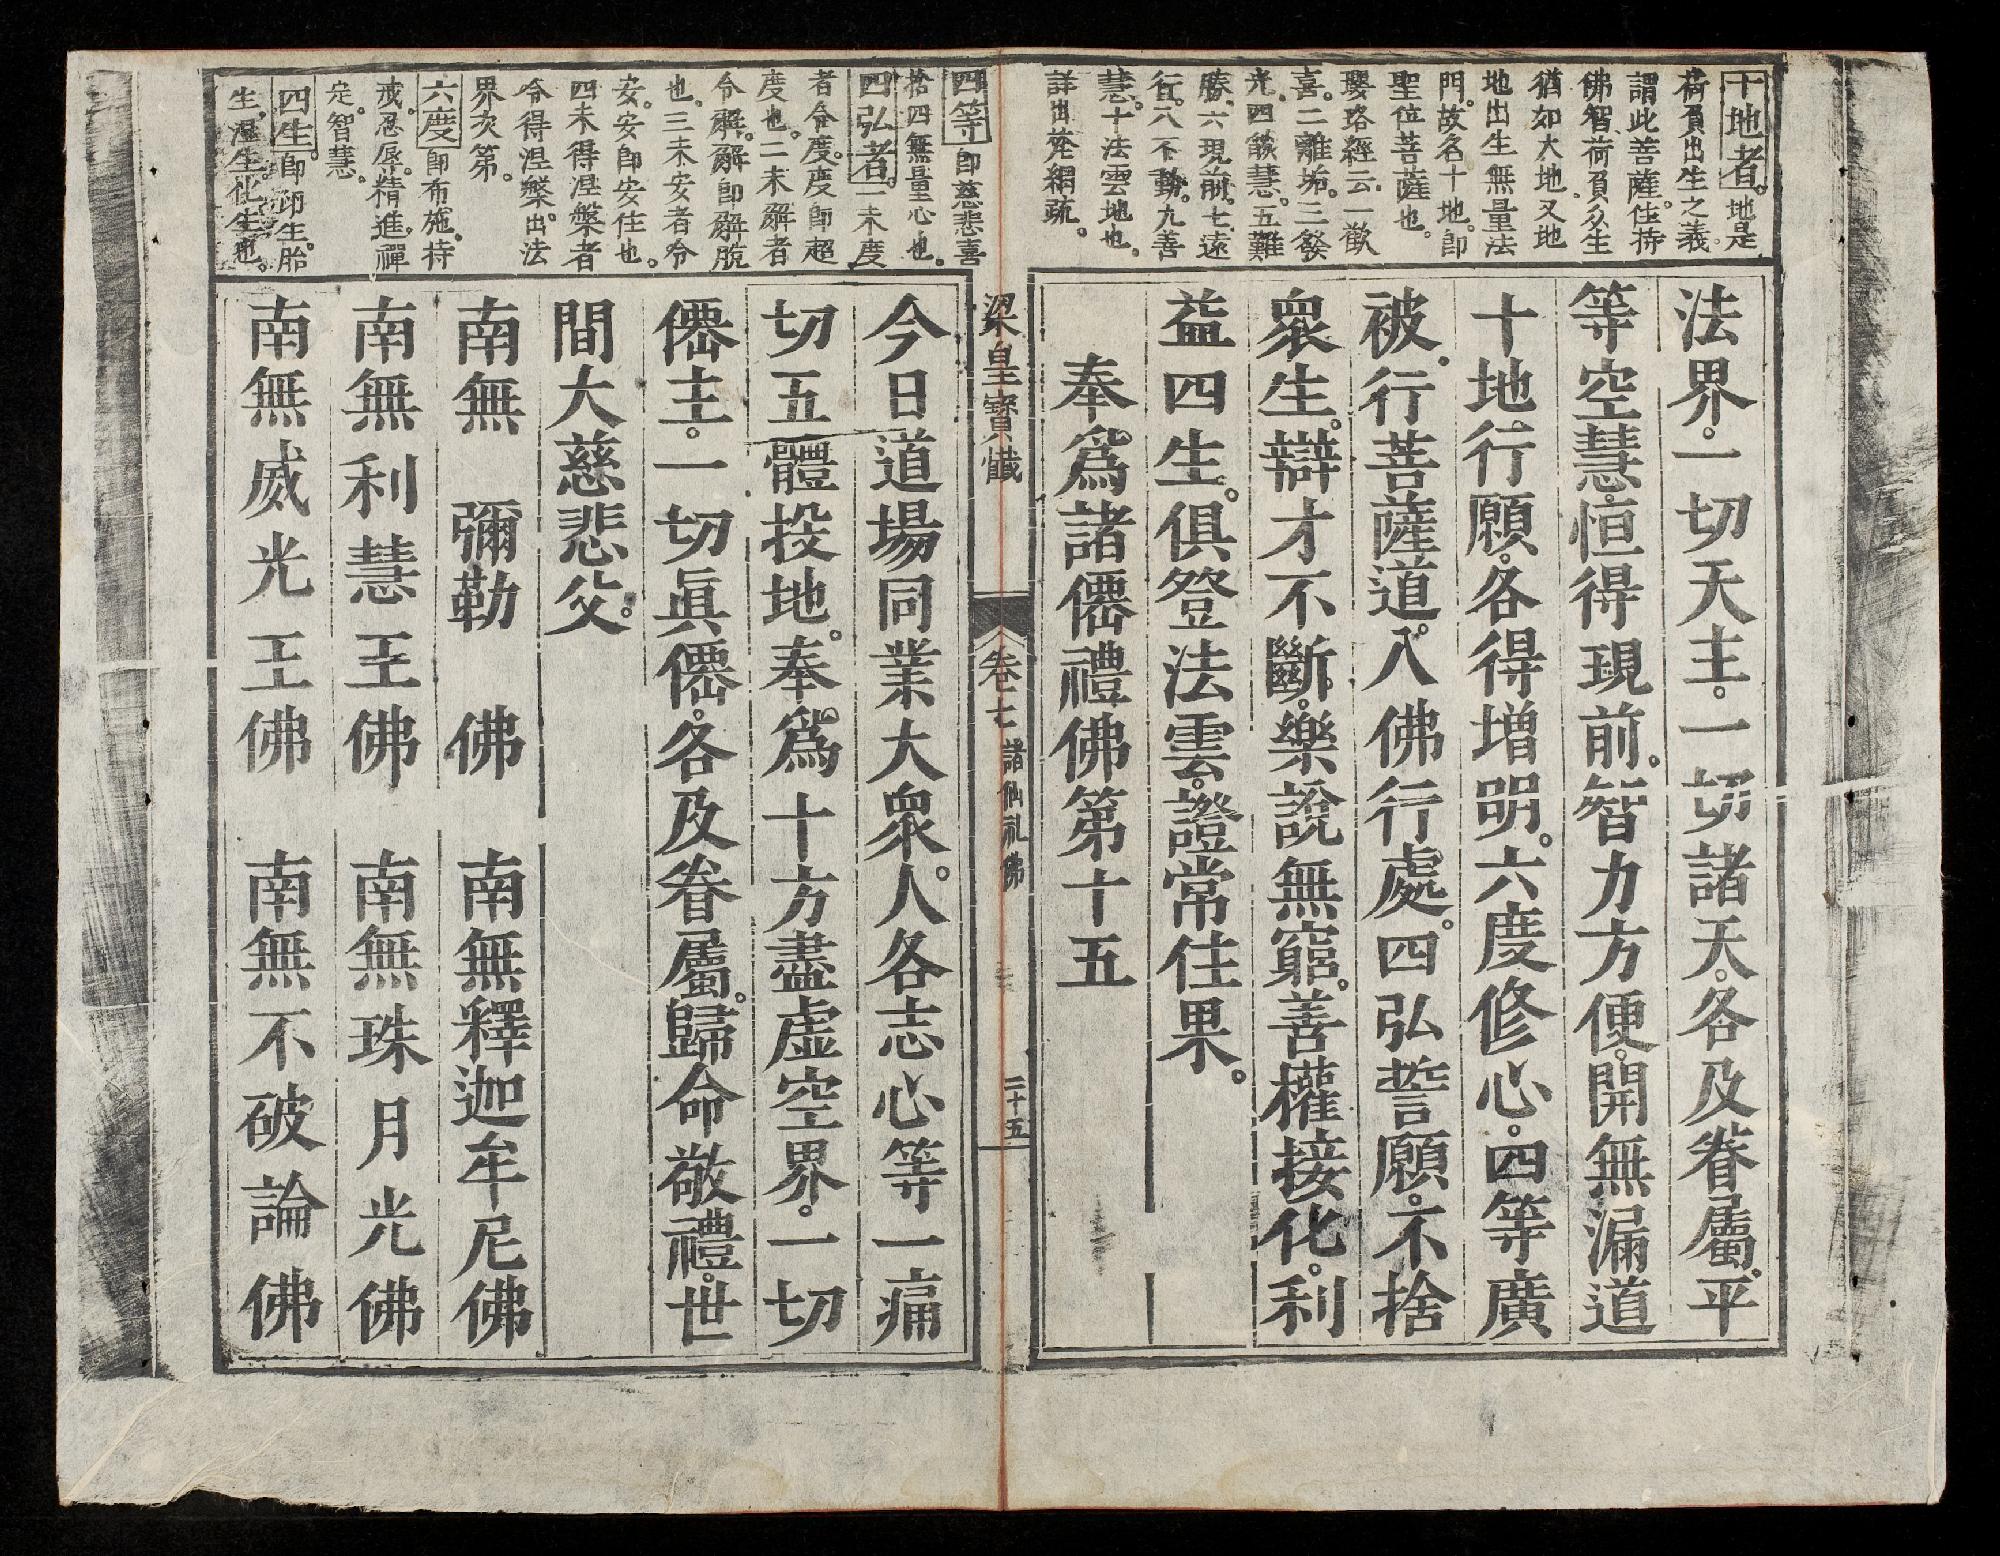 十地者。地是
荷負出生之義。
謂此菩薩。住持
佛智。荷負众生
猶如大地。又地
地出生無量法
門。故名十地。即
聖位菩薩也。
瓔珞經云。一歡
喜。二離垢。三發
光。四燄慧。五難
勝。六現前。七遠
行。八不動。九善
慧。十法雲地也。
詳出梵網疏。
法界。一切天主。一切諸天。各及眷屬。平
等空慧。恒得現前。智力方便。開無漏道
十地行願。各得增明。六度修心。四等廣
被。行菩薩道。入佛行處。四弘誓願。不捨
衆生。辯才不斷。樂說無窮。善權接化。利
益四生。俱登法雲。證常住果。
奉爲諸僊禮佛第十五
梁皇寶懺
卷七 諸仙礼佛
二十五
四等即慈悲喜
捨四無量心也。
四弘者。一未度
者令度。度即超
度也。二未解者
令解。解即解脫
也。三未安者令
安。安即安住也。
四未得涅槃者
令得涅槃。出法
界次第。
六度即布施。持
戒。忍辱。精進。禪
定。智慧。
四生即卵生。胎
生。濕生。化生也。
今日道場同業大衆。人各志心等一痛
切五體投地。奉爲十方盡虛空界。一切
僊主。一切眞僊。各及眷屬。歸命敬禮。世
間大慈悲父。
南無彌勒佛 南無釋迦牟尼佛
南無利慧王佛 南無珠月光佛
南無威光王佛 南無不破論佛